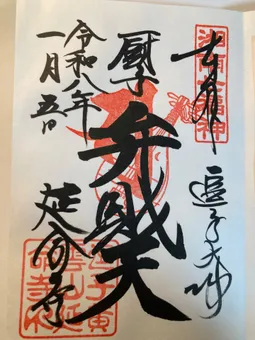 奉拝
湘南七福神
逗子大師
厨子
弁財天
令和八年
一月五日
延命寺
雲山延